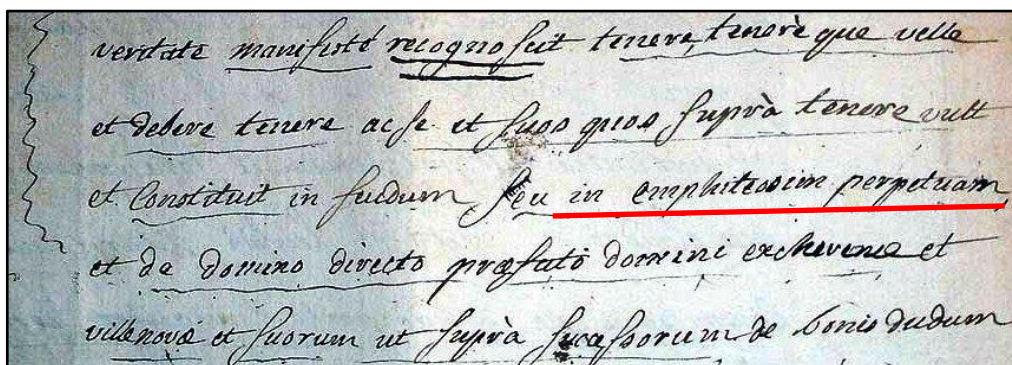 veritate manifesté recognoscit tenere, tenerè que velle
et debere tenere ac se et suos quos suprà tenere vult
et Constituit in feudum seu in emphiteosim perpetuam
et de domino directo præfati domini et
villenovæ et suorum ut suprà successorum de bonis dudum